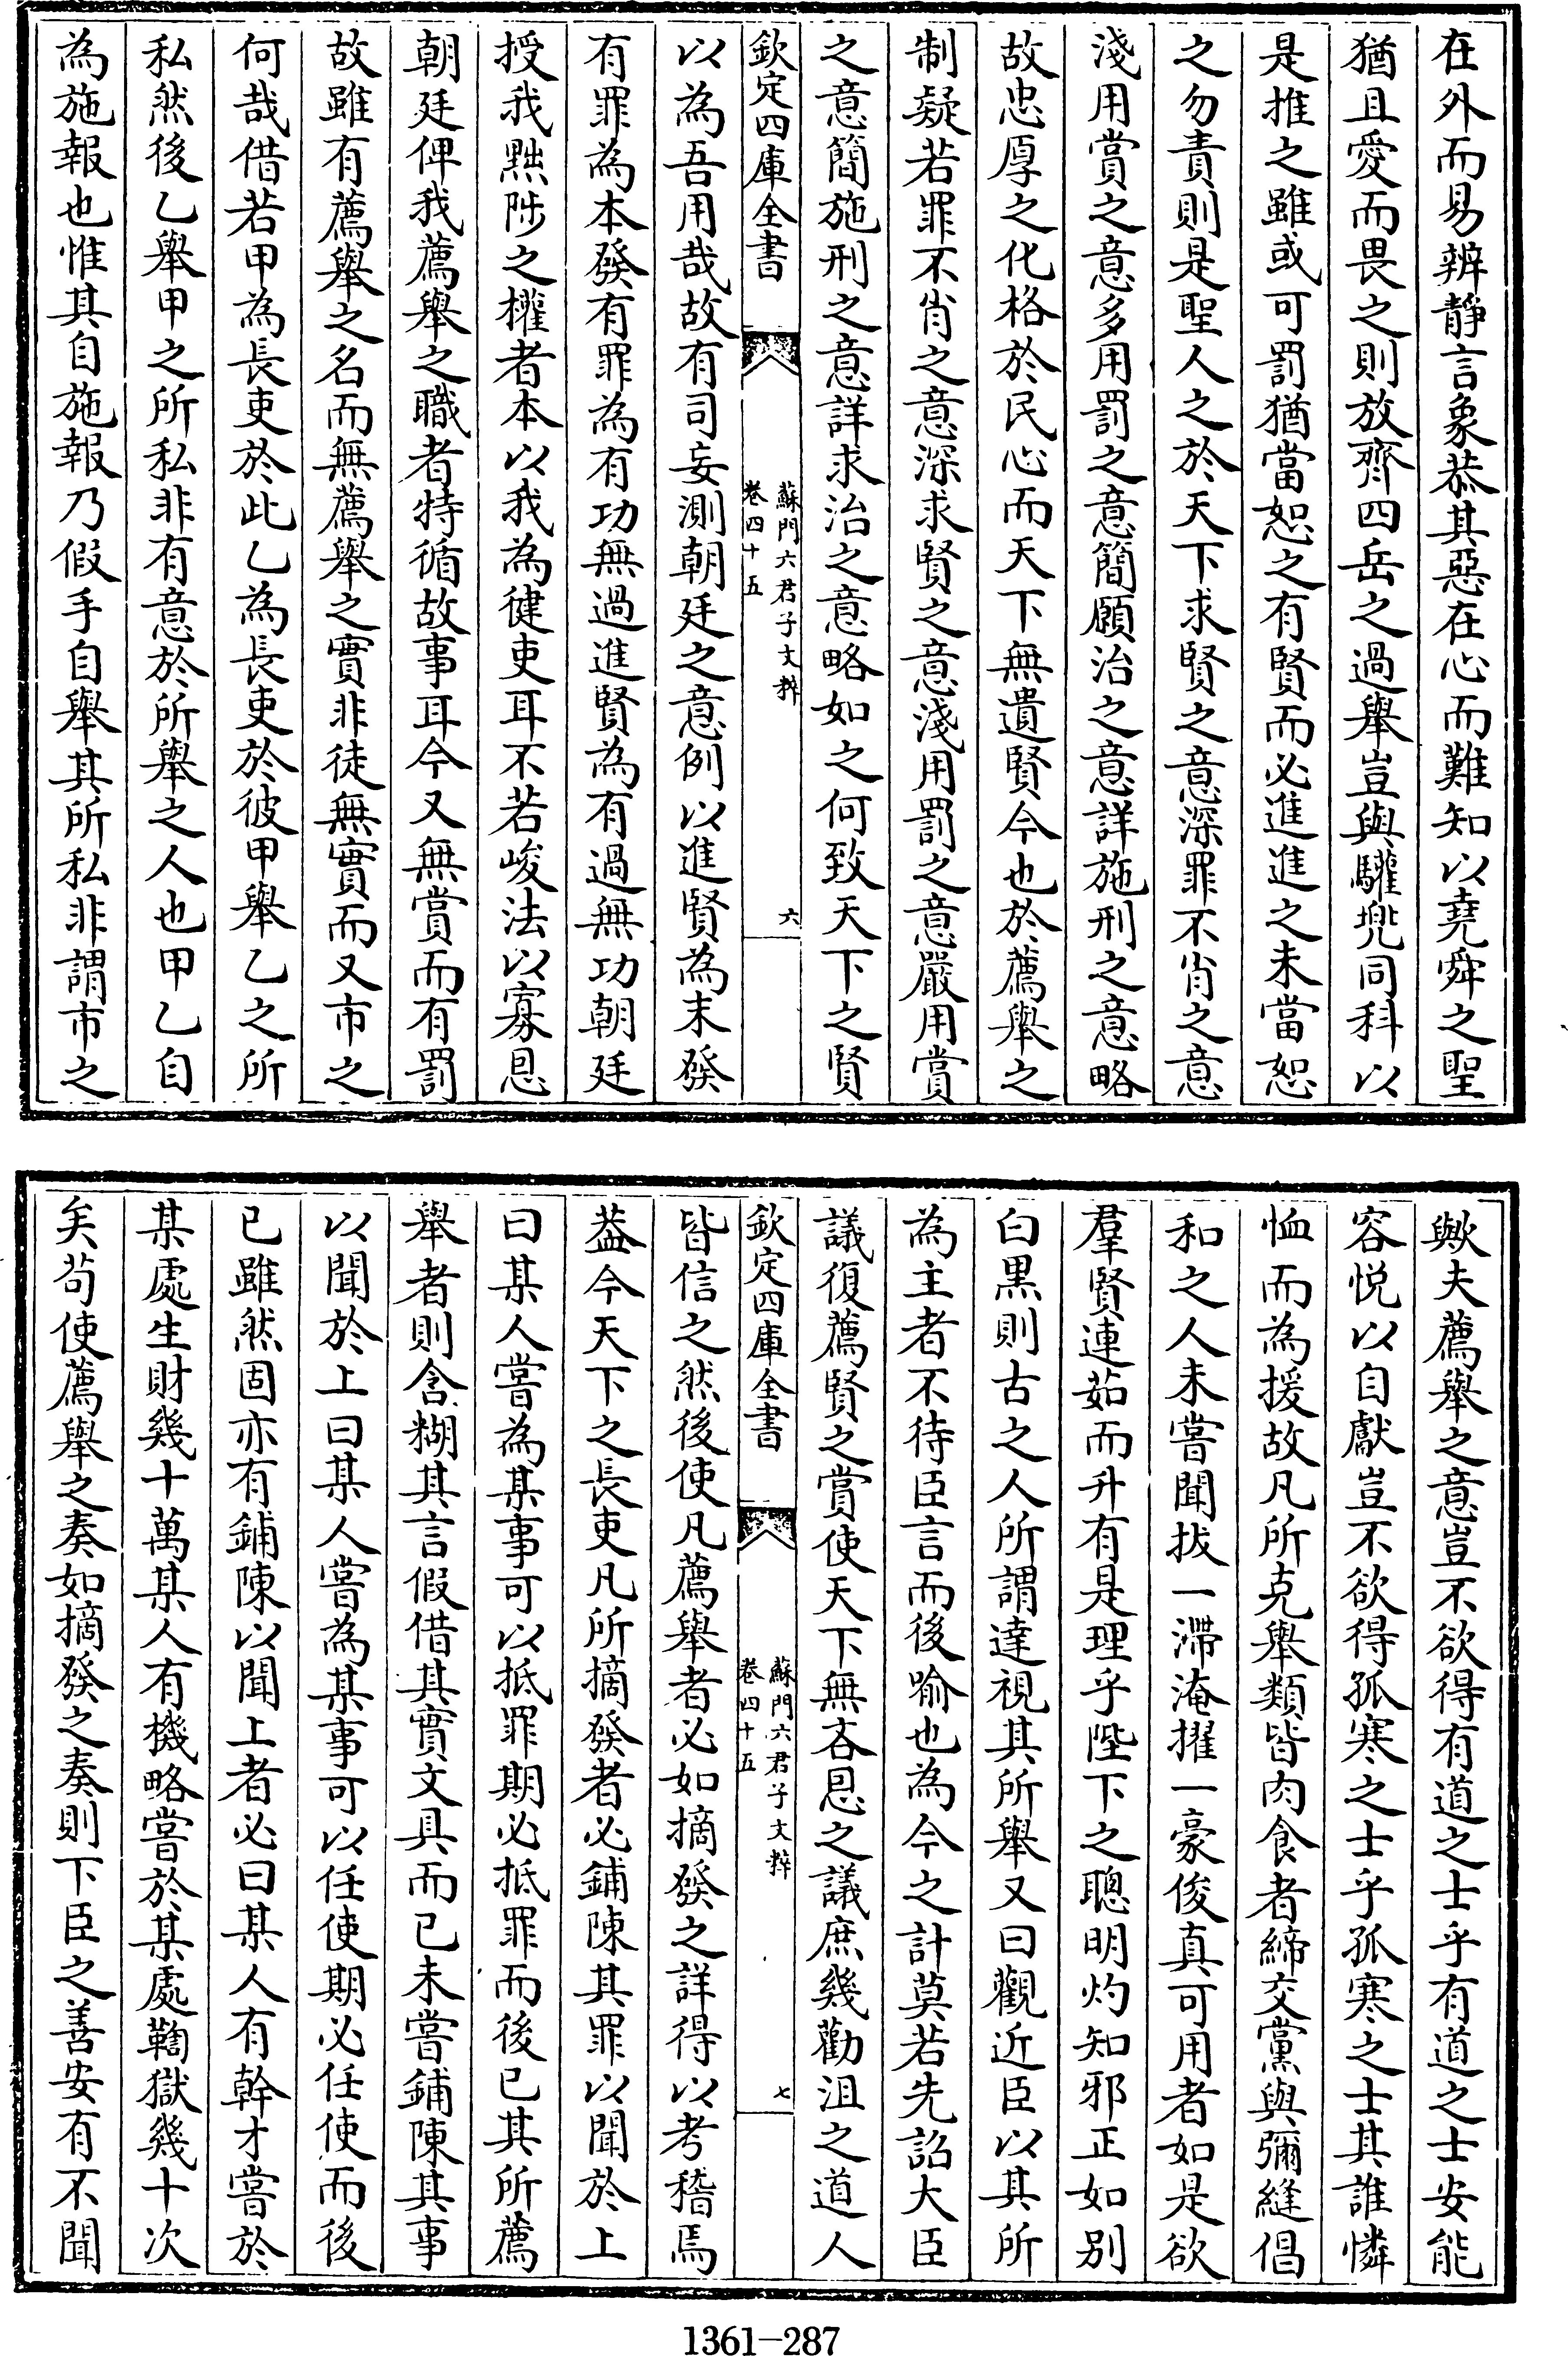 在外而易辨靜言象恭其惡在心而難知以堯舜之聖
猶且愛而畏之則放齊四岳之過舉豈與驩兜同科以
是推之雖或可罰猶當恕之有賢而必進進之未當恕
之勿責則是聖人之於天下求賢之意深罪不肖之意
淺用賞之意多用罰之意簡願治之意詳施刑之意略
故忠厚之化格於民心而天下無遺賢今也於薦舉之
制疑若罪不肖之意深求賢之意淺用罰之意嚴用賞
之意簡施刑之意詳求治之意略如之何致天下之賢
欽定四庫全書
蘇門六君子文粹
卷四十五
六
以為吾用哉故有司妄測朝廷之意例以進賢為末發
有罪為本發有罪為有功無過進賢為有過無功朝廷
授我黜陟之權者本以我為健吏耳不若峻法以寡恩
朝廷俾我薦舉之職者特循故事耳今又無賞而有罰
故雖有薦舉之名而無薦舉之實非徒無實而又市之
何哉借若甲為長吏於此乙為長吏於彼甲舉乙之所
私然後乙舉甲之所私非有意於所舉之人也甲乙自
為施報也惟其自施報乃假手自舉其所私非謂市之
歟夫薦舉之意豈不欲得有道之士乎有道之士安能
容悅以自獻豈不欲得孤寒之士乎孤寒之士其誰憐
恤而為援故凡所克舉類皆肉食者締交黨與彌縫倡
和之人未嘗聞拔一滯淹擢一豪俊真可用者如是欲
羣賢連茹而升有是理乎陛下之聰明灼知邪正如別
白黑則古之人所謂達視其所舉又曰觀近臣以其所
為主者不待臣言而後喻也為今之計莫若先詔大臣
議復薦賢之賞使天下無吝恩之議庶幾勸沮之道人
欽定四庫全書
蘇門六君子文粹
卷四十五
七
皆信之然後使凡薦舉者必如摘發之詳得以考稽焉
葢今天下之長吏凡所摘發者必鋪陳其罪以聞於上
曰某人嘗為某事可以抵罪期必抵罪而後已其所薦
舉者則含糊其言假借其實文具而已未嘗鋪陳其事
以聞於上曰某人嘗為某事可以任使期必任使而後
已雖然固亦有鋪陳以聞上者必曰某人有幹才嘗於
某處生財幾十萬某人有機略嘗於某處鞫獄幾十次
矣苟使薦舉之奏如摘發之奏則下臣之善安有不聞
1361-287